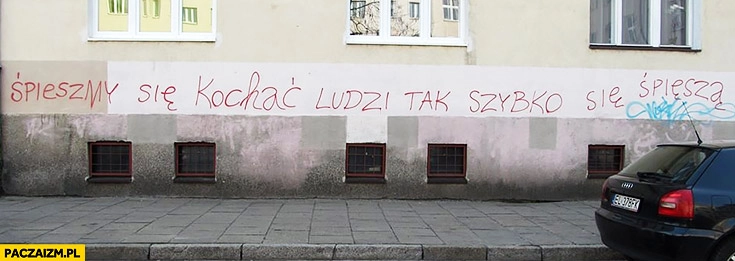 ŚPIESZMY SIĘ KOCHAĆ LUDZI TAK SZYBKO SIĘ ŚPIĘSZĄ
EL 378FK
PACZAIZM.PL